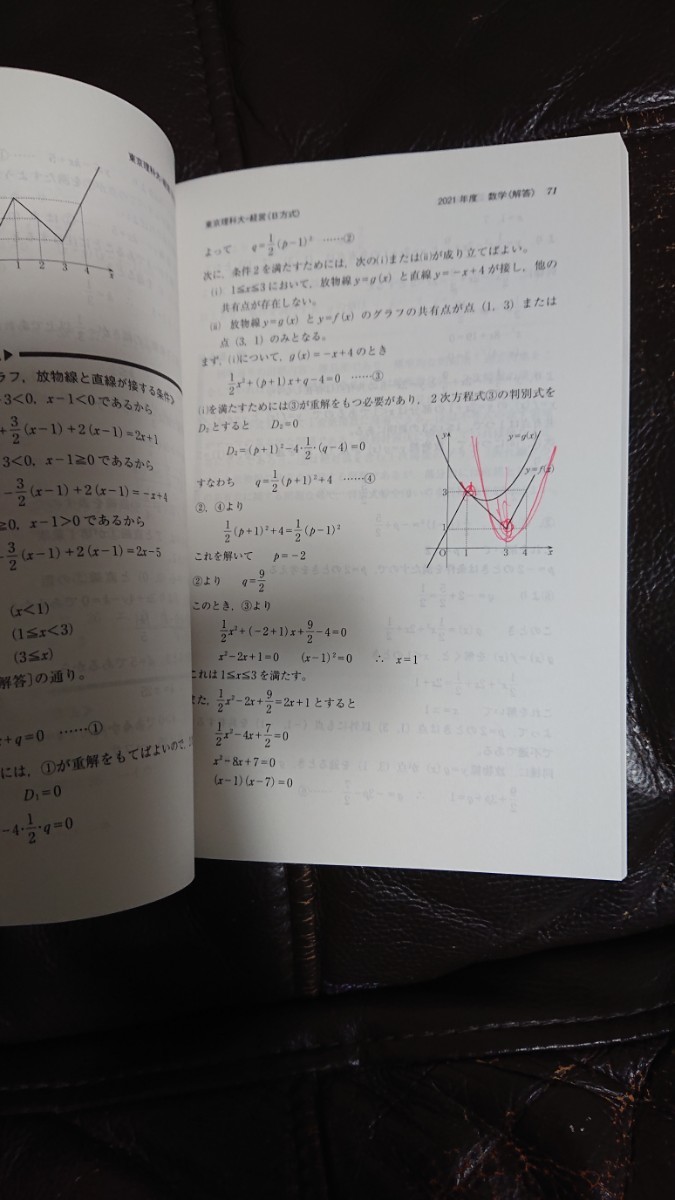 1
2
3
4
x
▶
ラフ，放物線と直線が接する条件》
3<0, x−1<0であるから
+3/2(x−1)+2(x−1)=2x+1
3<0, x−1≧0であるから
−3/2(x−1)+2(x−1)=−x+4
≧0, x−1>0であるから
3/2(x−1)+2(x−1)=2x−5
(x<1)
(1≦x<3)
(3≦x)
解答〕の通り。
x+q=0 ……①
には，①が重解をもてばよいので，
D₁=0
−4・1/2・q=0
東京理科大−経営(B方式)
2021年度 数学〈解答〉 71
よって q=1/2(p−1)² ……②
次に，条件2を満たすためには，次の(i)または(ii)が成り立てばよい。
(i) 1≦x≦3において，放物線y=g(x)と直線y=−x+4が接し，他の
共有点が存在しない。
(ii) 放物線y=g(x)とy=f(x)のグラフの共有点が点(1, 3)または
点(3, 1)のみとなる。
まず，(i)について，g(x)=−x+4のとき
1/2x²+(p+1)x+q−4=0 ……③
(i)を満たすためには③が重解をもつ必要があり，2次方程式③の判別式を
D₂とすると D₂=0
D₂=(p+1)²−4・1/2・(q−4)=0
すなわち q=1/2(p+1)²+4 ……④
②，④より
1/2(p+1)²+4=1/2(p−1)²
これを解いて p=−2
②より q=9/2
このとき，③より
1/2x²+(−2+1)x+9/2−4=0
x²−2x+1=0 (x−1)²=0 ∴ x=1
これは1≦x≦3を満たす。
また，1/2x²−2x+9/2=2x+1とすると
1/2x²−4x+7/2=0
x²−8x+7=0
(x−1)(x−7)=0
y
y=g(x)
y=f(x)
3
1
O
1
3
4
x